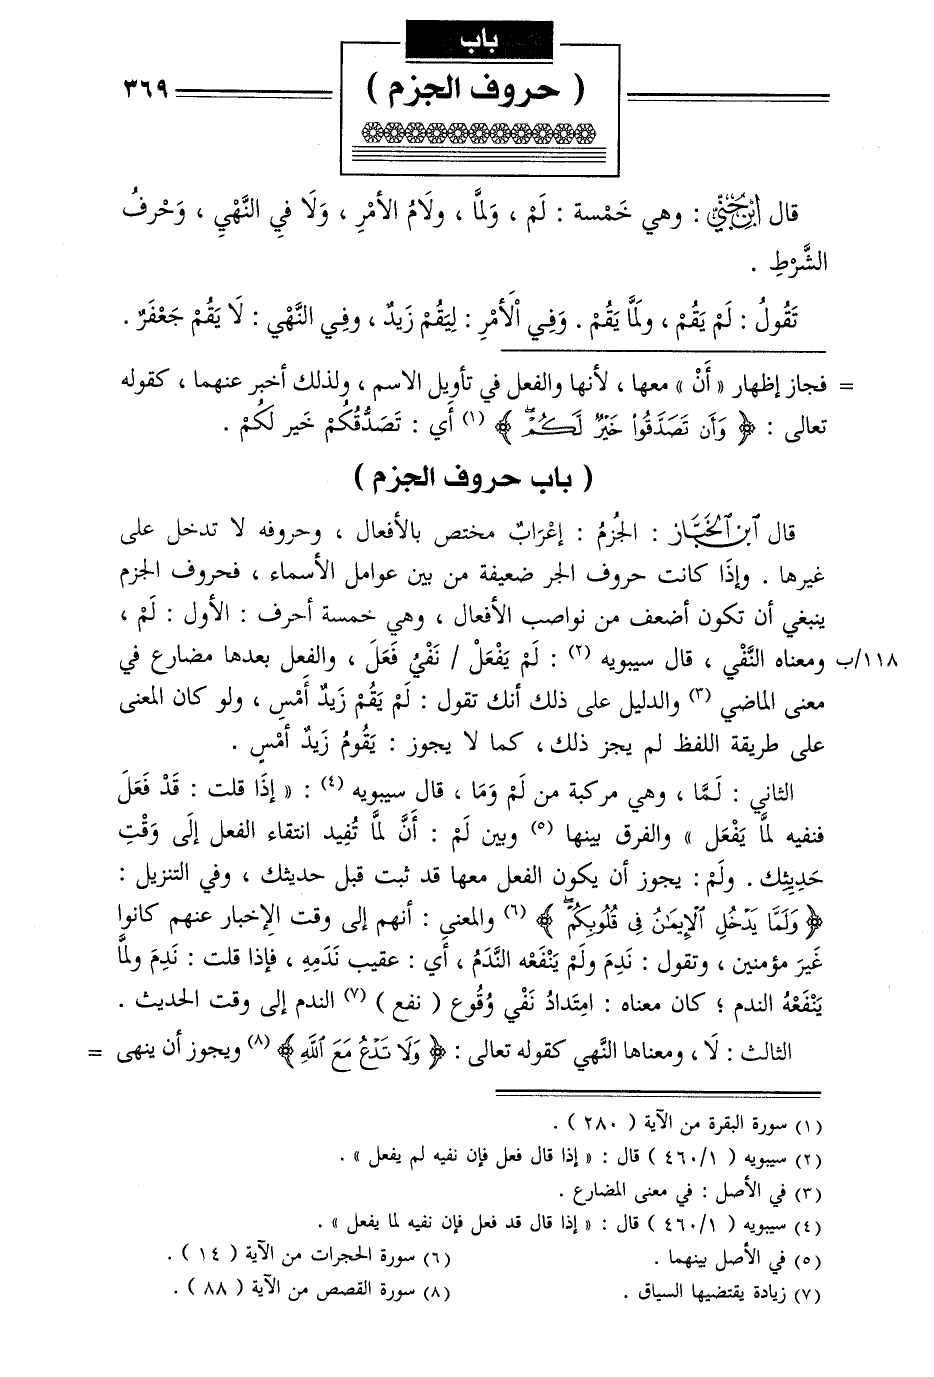 باب
( حروف الجزم )
٣٦٩
قال ابن جني : وهي خَمْسة : لَمْ ، وَلَمَّا ، ولَامُ الأمْرِ ، وَلَا فِي النَّهْيِ ، وَحْرفُ
الشَّرْطِ .
تَقُولُ : لَمْ يَقُمْ ، ولَمَّا يَقُمْ . وَفِي الْأَمْرِ : لِيَقُمْ زَيدٌ ، وفِي النَّهْي : لَا يَقُمْ جَعْفَرٌ .
= فجاز إظهار « أَنْ » معها ، لأنها والفعل في تأويل الاسم ، ولذلك أخبر عنهما ، كقوله
تعالى : ﴿ وَأَن تَصَدَّقُوا۟ خَيْرٌ لَّكُمْ ﴾ (١) أَي : تَصَدُّقُكُمْ خَير لَكُمْ .
( باب حروف الجزم )
قال ابن الخباز : الجُزمُ : إعْرَابٌ مختص بالأفعال ، وحروفه لا تدخل على
غيرها . وإذَا كانت حروف الجر ضعيفة من بين عوامل الأسماء ، فحروف الجزم
ينبغي أن تكون أضعف من نواصب الأفعال ، وهي خمسة أحرف : الأول : لَمْ ،
١١٨/ب ومعناه النَّفْي ، قال سيبويه (٢) : لَمْ يَفْعَلْ / نَفْيُ فَعَلَ ، والفعل بعدها مضارع في
معنى الماضي (٣) والدليل على ذلك أنك تقول : لَمْ يَقُمْ زَيدٌ أَمْسِ ، ولو كان المعنى
على طريقة اللفظ لم يجز ذلك ، كما لا يجوز : يَقُومُ زَيدٌ أمْسِ .
الثاني : لَمَّا ، وهي مركبة من لَمْ وَمَا ، قال سيبويه (٤) : « إذَا قلت : قَدْ فَعَلَ
فنفيه لَمَّا يَفْعَل » والفرق بينها (٥) وبين لَمْ : أَنَّ لَمَّا تُفِيد انتقاء الفعل إلَى وَقْتِ
حَدِيثِك . ولَمْ : يجوز أن يكون الفعل معها قد ثبت قبل حديثك ، وفي التنزيل :
﴿ وَلَمَّا يَدْخُلِ ٱلْإِيمَٰنُ فِى قُلُوبِكُمْ ﴾ (٦) والمعنى : أنهم إلى وقت الإخبار عنهم كانوا
غَيرَ مؤمنين ، وتقول : نَدِمَ ولَمْ يَنْفَعْه النَّدَمُ ، أي : عقيب نَدَمِهِ ، فإذا قلت : نَدِمَ ولَمَّا
يَنْفَعْهُ الندم ؛ كان معناه : امتِدَادُ نَفْي وُقُوع ( نفع ) (٧) الندم إلى وقت الحديث .
الثالث : لَا ، ومعناها النَّهي كقوله تعالى : ﴿ وَلَا تَدْعُ مَعَ ٱللَّهِ ﴾ (٨) ويجوز أن ينهى =
(١) سورة البقرة من الآية ( ٢٨٠ ) .
(٢) سيبويه ( ٤٦٠/١ ) قال : « إذا قال فعل فإن نفيه لم يفعل » .
(٣) في الأصل : في معنى المضارع .
(٤) سيبويه ( ٤٦٠/١ ) قال : « إذا قال قد فعل فإن نفيه لما يفعل » .
(٥) في الأصل بينهما . (٦) سورة الحجرات من الآية ( ١٤ ) .
(٧) زيادة يقتضيها السياق . (٨) سورة القصص من الآية ( ٨٨ ) .